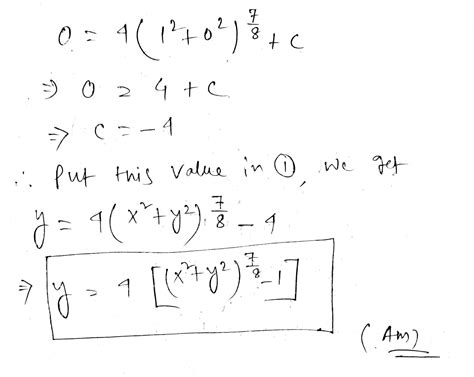 0 = 4(1²+0²)^(7/8) + c
⇒ 0 = 4 + c
⇒ c = -4
∴ Put this value in ①, we get
y = 4(x²+y²)^(7/8) - 4
⇒ y = 4[(x²+y²)^(7/8) - 1]
(Ans)